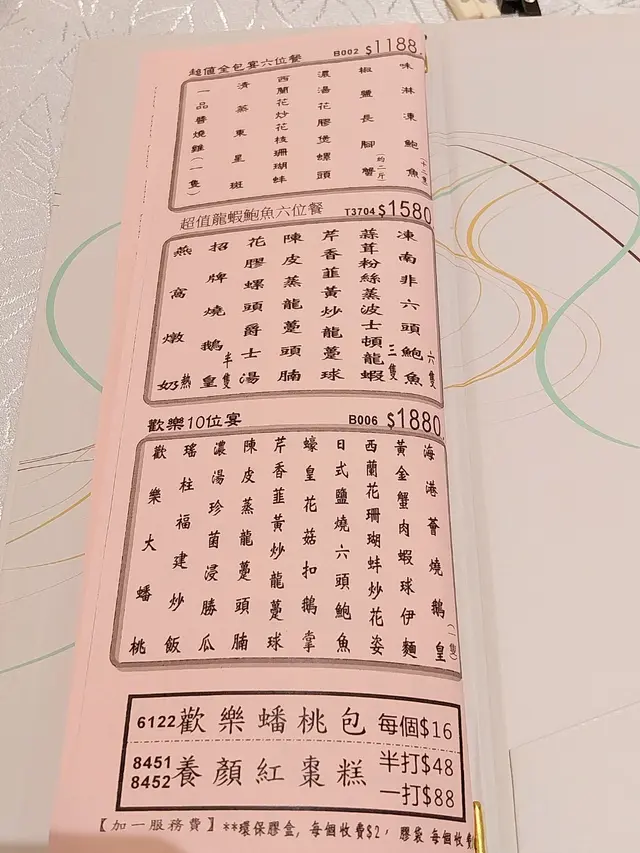 超值全包宴六位餐 B002 $1188
味淋凍鮑魚(十二隻)
椒鹽長腳蟹(約二斤)
濃湯花膠煲螺頭
西蘭花炒花枝珊瑚蚌
清蒸東星斑
一品醬燒雞(一隻)
超值龍蝦鮑魚六位餐 T3704 $1580
凍南非六頭鮑魚六隻
蒜茸粉絲蒸波士頓龍蝦三隻
芹香韮黃炒龍躉球
陳皮蒸龍躉頭腩
花膠螺頭爵士湯
招牌燒鵝皇半隻
燕窩燉熱奶
歡樂10位宴 B006 $1880
海港薈燒鵝皇(一隻)
黃金蟹肉蝦球伊麵
西蘭花珊瑚蚌炒花姿
日式鹽燒六頭鮑魚
蠔皇花菇扣鵝掌
芹香韮黃炒龍躉球
陳皮蒸龍躉頭腩
濃湯珍菌浸勝瓜
瑤柱福建炒飯
歡樂大蟠桃
6122 歡樂蟠桃包 每個$16
8451 養顏紅棗糕 半打$48
8452 一打$88
【加一服務費】**環保膠盒, 每個收費$2, 膠袋 每個收費